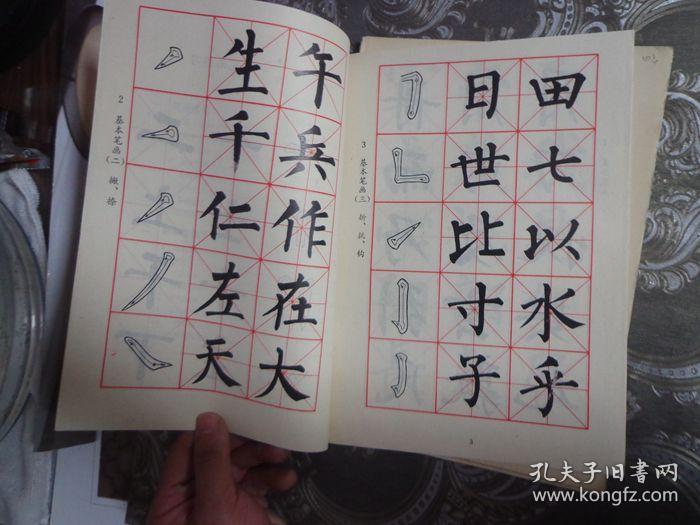 2 基本笔画(二) 撇、捺
生 午
千 兵
仁 作
左 在
天 大
3 基本笔画(三) 折、挑、钩
日 田
世 七
比 以
寸 水
子 乎
3
孔夫子旧书网
www.kongfz.com